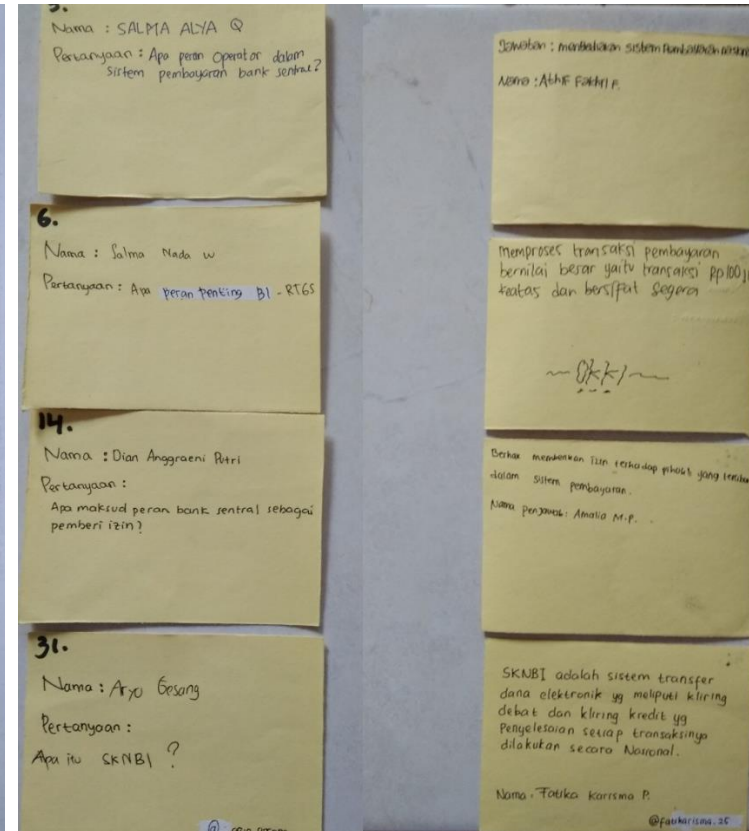 5.
Nama : SALMA ALYA Q
Pertanyaan : Apa peran operator dalam
sistem pembayaran bank sentral?
6.
Nama : Salma Nada W
Pertanyaan : Apa peran penting BI - RTGS
14.
Nama : Dian Anggraeni Putri
Pertanyaan :
Apa maksud peran bank sentral sebagai
pemberi izin?
31.
Nama : Aryo Gesang
Pertanyaan :
Apa itu SKNBI ?
Jawaban : sistem
Nama : Athif Fakhri F.
memproses transaksi pembayaran
bernilai besar yaitu transaksi Rp 100 j
keatas dan bersifat segera
~ OKKI ~
Berhak memberikan izin terhadap pihak2 yang
dalam sistem pembayaran.
Nama penjawab : Amalia M.P.
SKNBI adalah sistem transfer
dana elektronik yg meliputi kliring
debat dan kliring kredit yg
Penyelesaian setiap transaksinya
dilakukan secara Nasional.
Nama : Fatika Karisma P.
@fatikarisma.25